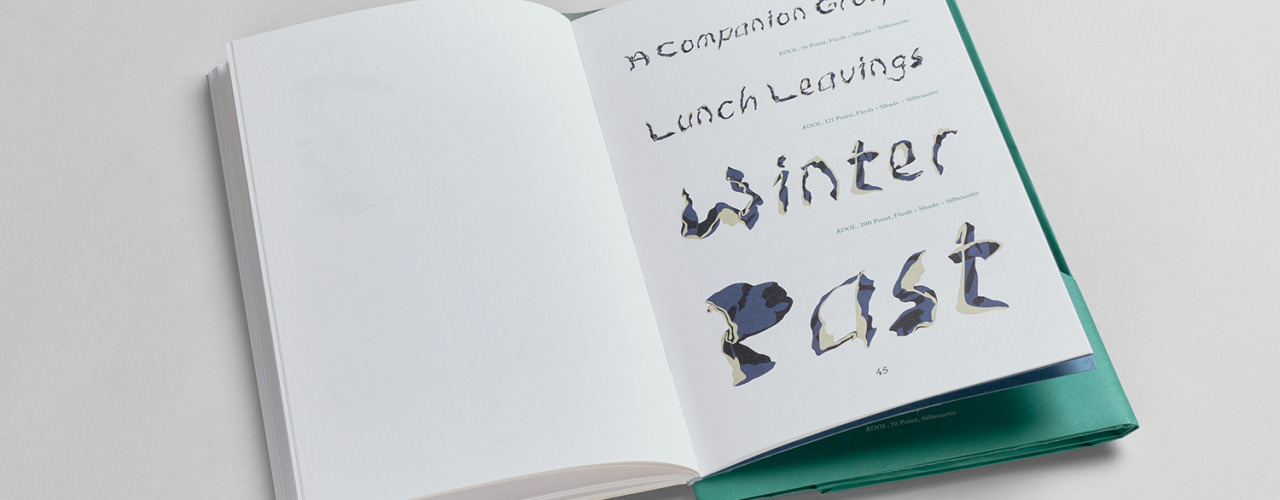 A Companion
KOOL, 96 Point, Flesh + Shade + Silhouette
Lunch Leavings
KOOL, 127 Point, Flesh + Shade + Silhouette
Winter
KOOL, 200 Point, Flesh + Shade + Silhouette
Past
45
KOOL, 20 Point, Silhouette